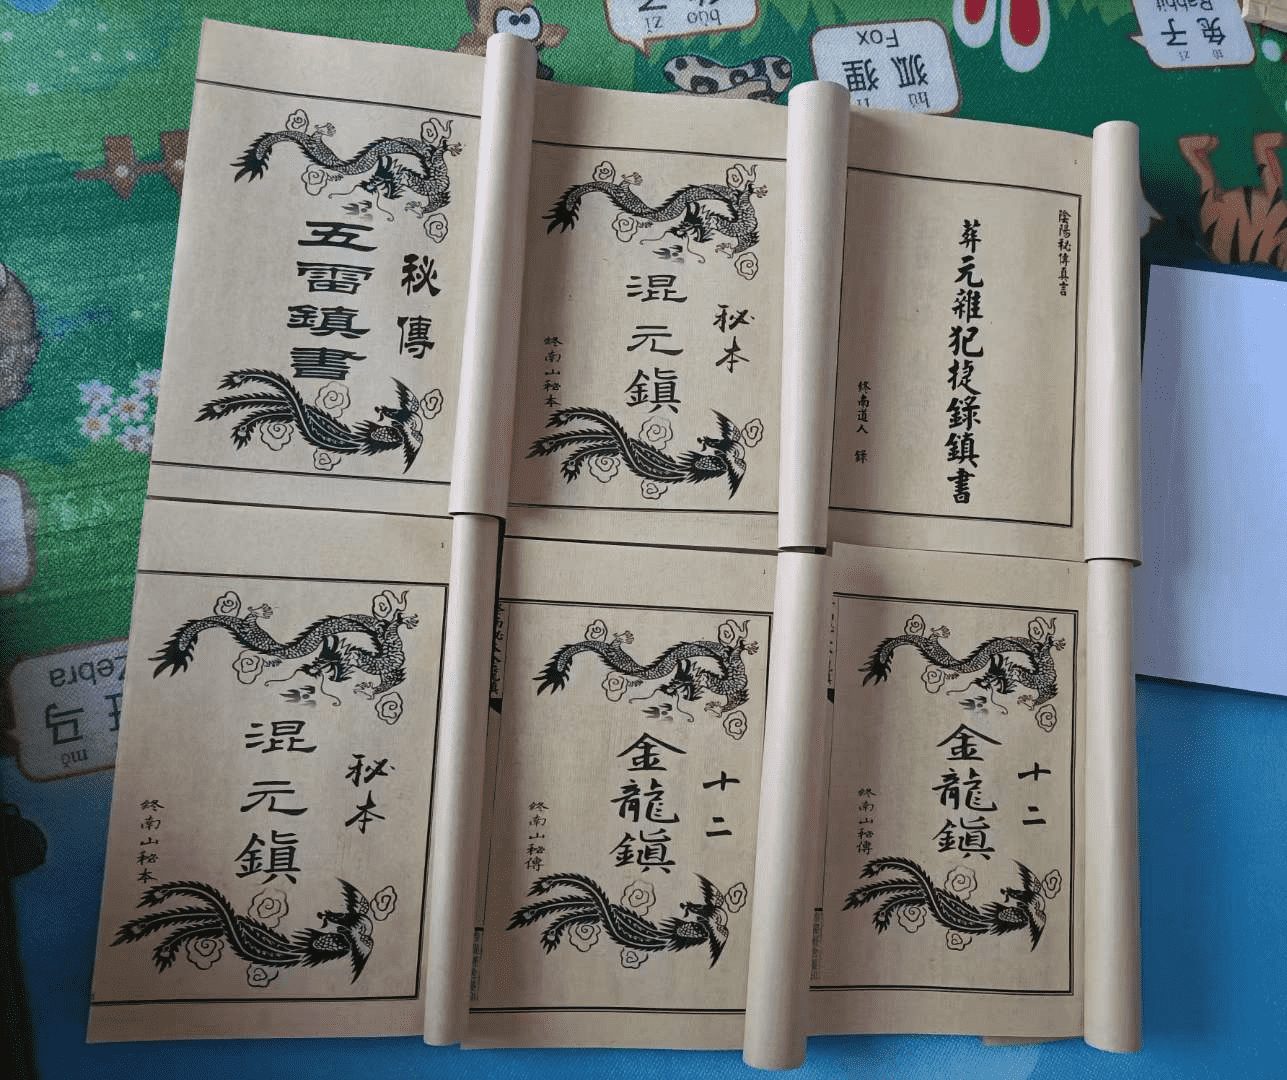 秘傳
五雷鎮書
秘本
混元鎮
終南山秘本
陰陽秘傳真言
葬元雜犯捷錄鎮書
終南道人 錄
秘本
混元鎮
終南山秘本
十二
金龍鎮
終南山秘傳
十二
金龍鎮
終南山秘傳
hú
狐狸
Fox
tù zi
兔子
Rabbit
bào zi
子
mǎ
马
Zebra